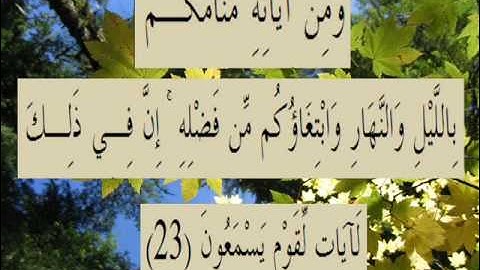 وَمِنْ آيَاتِهِ مَنَامُكُم
بِاللَّيْلِ وَالنَّهَارِ وَابْتِغَاؤُكُم مِّن فَضْلِهِ ۚ إِنَّ فِي ذَٰلِكَ
لَآيَاتٍ لِّقَوْمٍ يَسْمَعُونَ (23)